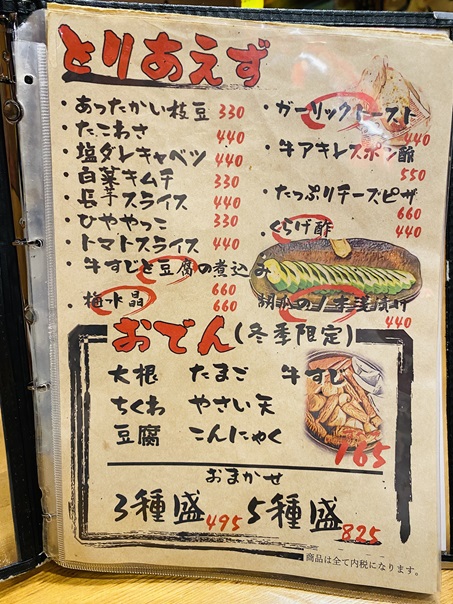 とりあえず
・あったかい枝豆 330
・たこわさ 440
・塩ダレキャベツ 440
・白菜キムチ 330
・長芋スライス 440
・ひややっこ 330
・トマトスライス 440
・牛すじと豆腐の煮込み 660
・梅水晶 660
・ガーリックトースト 440
・牛アキレスポン酢 550
・たっぷりチーズピザ 660
・くらげ酢 440
胡瓜の1本浅漬け 440
おでん(冬季限定)
大根 たまご 牛すじ
ちくわ やさい天
豆腐 こんにゃく
165
おまかせ
3種盛 495 5種盛 825
商品は全て内税になります。